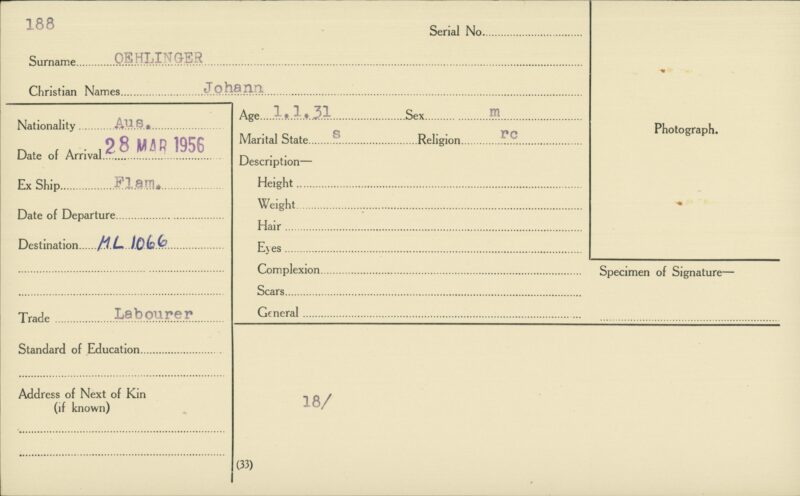 188
Serial No.
Surname OEHLINGER
Christian Names Johann
Nationality Aus.
Date of Arrival 28 MAR 1956
Ex Ship Flam.
Date of Departure
Destination ML 1066
Trade Labourer
Standard of Education
Address of Next of Kin
(if known)
Age 1.1.31 Sex m
Marital State s Religion rc
Description—
Height
Weight
Hair
Eyes
Complexion
Scars
General
18/
(33)
Photograph.
Specimen of Signature—